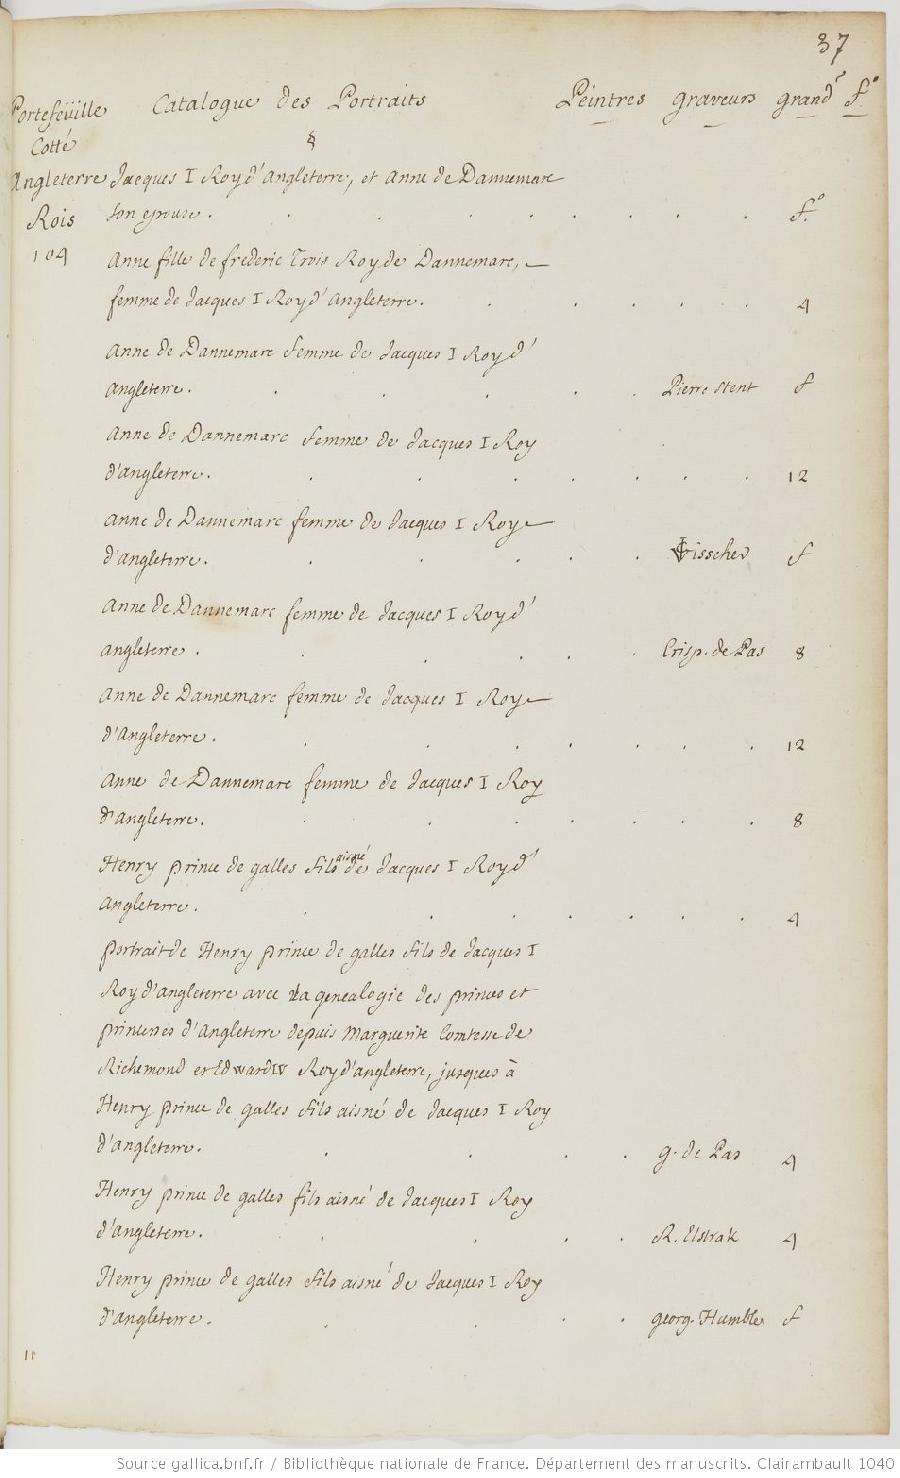 37
Portefeüille Catalogue des Portraits Peintres graveurs grandr f.o
Cotté §
Angleterre Jacques I Roy d'Angleterre, et Anne de Dannemarc
Rois son epouse. f.o
104
Anne fille de frederic Trois Roy de Dannemarc,
femme de Jacques I Roy d'Angleterre. 4
Anne de Dannemarc femme de Jacques I Roy d'
Angleterre. Pierre Stent f
Anne de Dannemarc femme de Jacques I Roy
d'angleterre. 12
Anne de Dannemarc femme de Jacques I Roy
d'angleterre. Visscher f
Anne de Dannemarc femme de Jacques I Roy d'
angleterre. Crisp. de Pas 8
Anne de Dannemarc femme de Jacques I Roy
d'Angleterre. 12
Anne de Dannemarc femme de Jacques I Roy
d'angleterre. 8
Henry prince de galles fils aisné de Jacques I Roy d'
angleterre. 4
portrait de Henry prince de galles fils de Jacques I
Roy d'angleterre avec la genealogie des princes et
princesses d'Angleterre depuis Marguerite Comtesse de
Richemond et Edward IV Roy d'angleterre, jusques à
Henry prince de galles fils aisné de Jacques I Roy
d'angleterre. g. de Pas 4
Henry prince de galles fils aisné de Jacques I Roy
d'angleterre. R. Elstrak 4
Henry prince de galles fils aisné de Jacques I Roy
d'angleterre. georg. Humble f
11
Source gallica.bnf.fr / Bibliothèque nationale de France. Département des manuscrits. Clairambault 1040